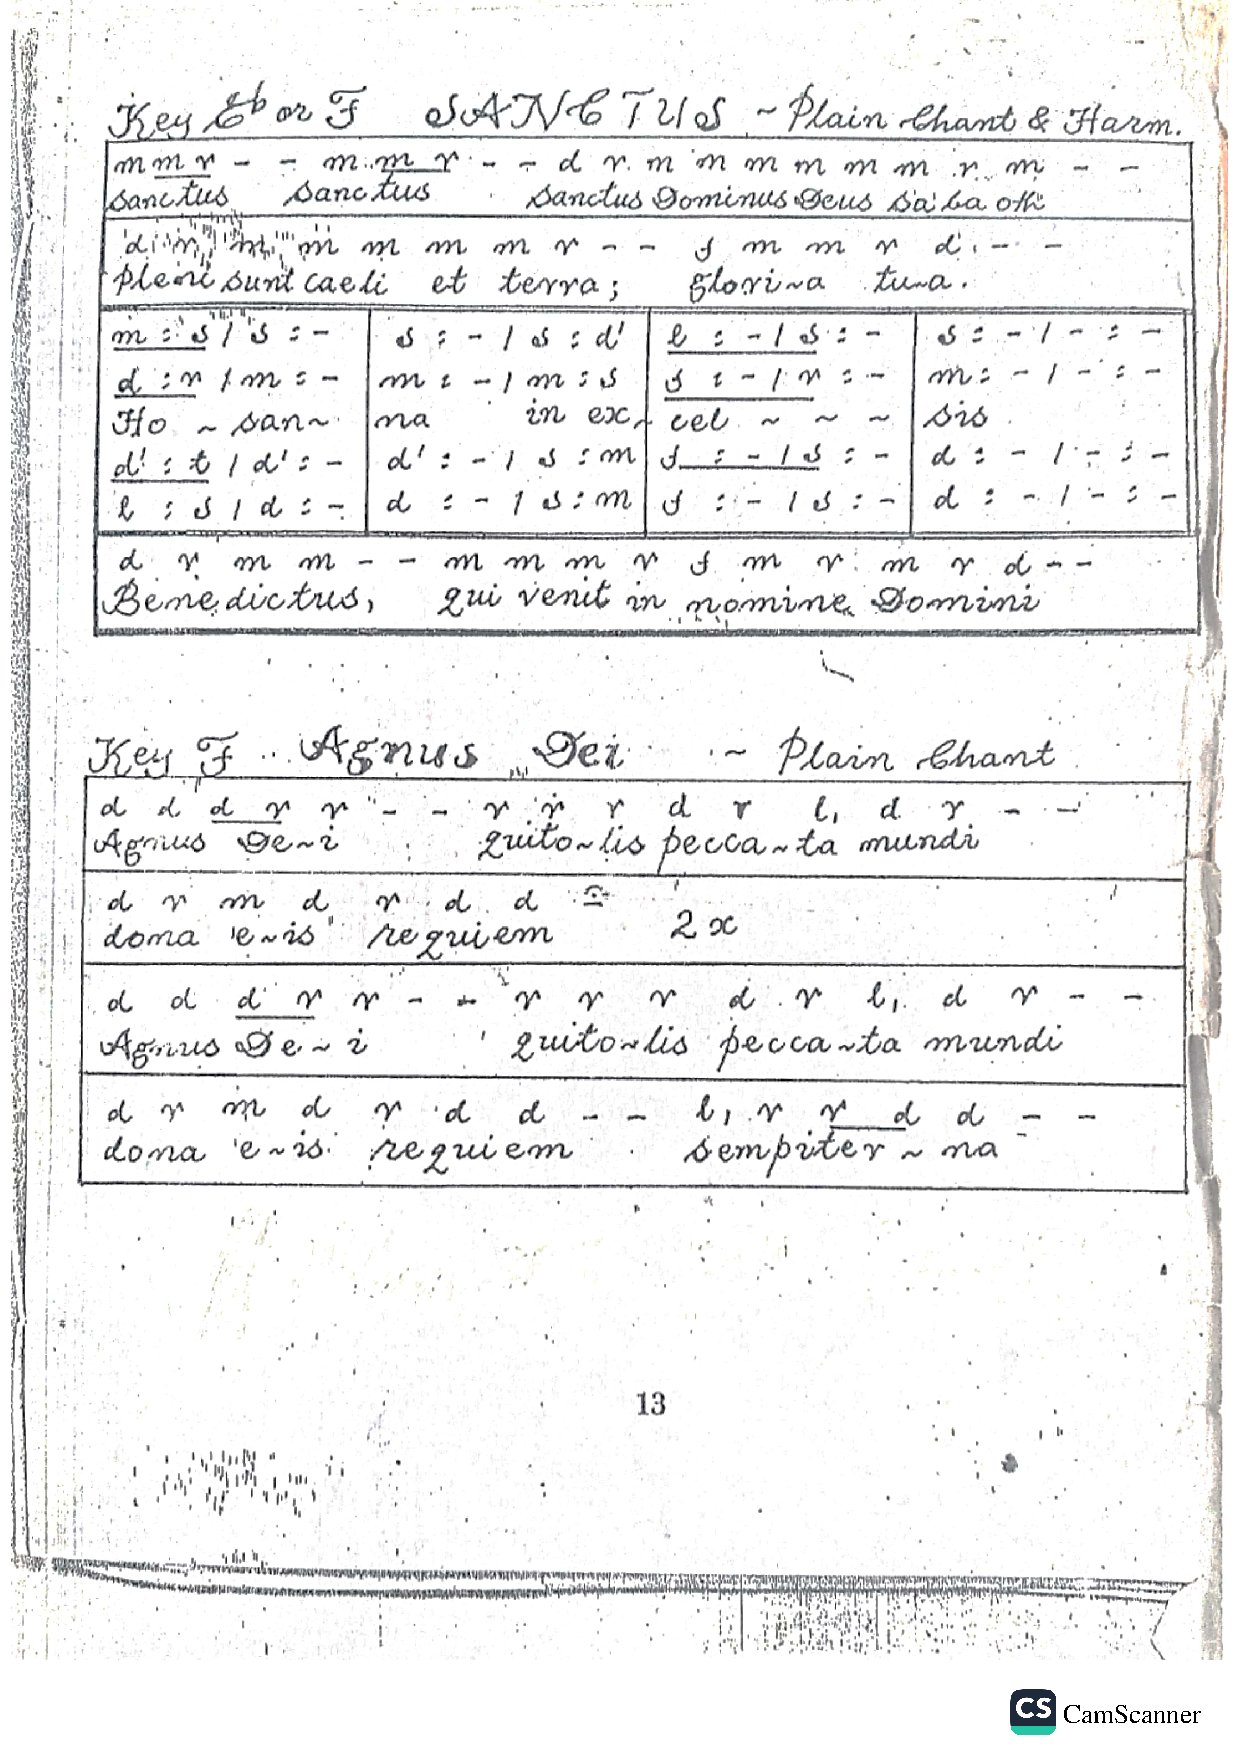 Key Eb or F SANCTUS ~ Plain Chant & Harm.
m m r - - m m r - - d r m m m m m m r m - -
Sanctus Sanctus Sanctus Dominus Deus Sabaoth
d r m m m m m r - - f m m r d - -
pleni sunt caeli et terra; glori~a tu~a.
m : s / s : - s : - / s : d' l : - / s : - s : - / - : -
d : r / m : - m : - / m : s f : - / r : - m : - / - : -
Ho ~ san~ na in ex~ cel ~ ~ ~ sis
d' : t / d' : - d' : - / s : m f : - / s : - d : - / - : -
l : s / d : - d : - / s : m f : - / s : - d : - / - : -
d r m m - - m m m r f m r m r d - -
Benedictus, qui venit in nomine Domini
Key F Agnus Dei ~ Plain Chant
d d d r r - - r r r d r l, d r - -
Agnus De~i quito~lis pecca~ta mundi
d r m d r d d
dona e~is requiem 2x
d d d r r - - r r r d r l, d r - -
Agnus De~i quito~lis pecca~ta mundi
d r m d r d d - - l, r r d d - -
dona e~is requiem sempiter~na
13
CS CamScanner